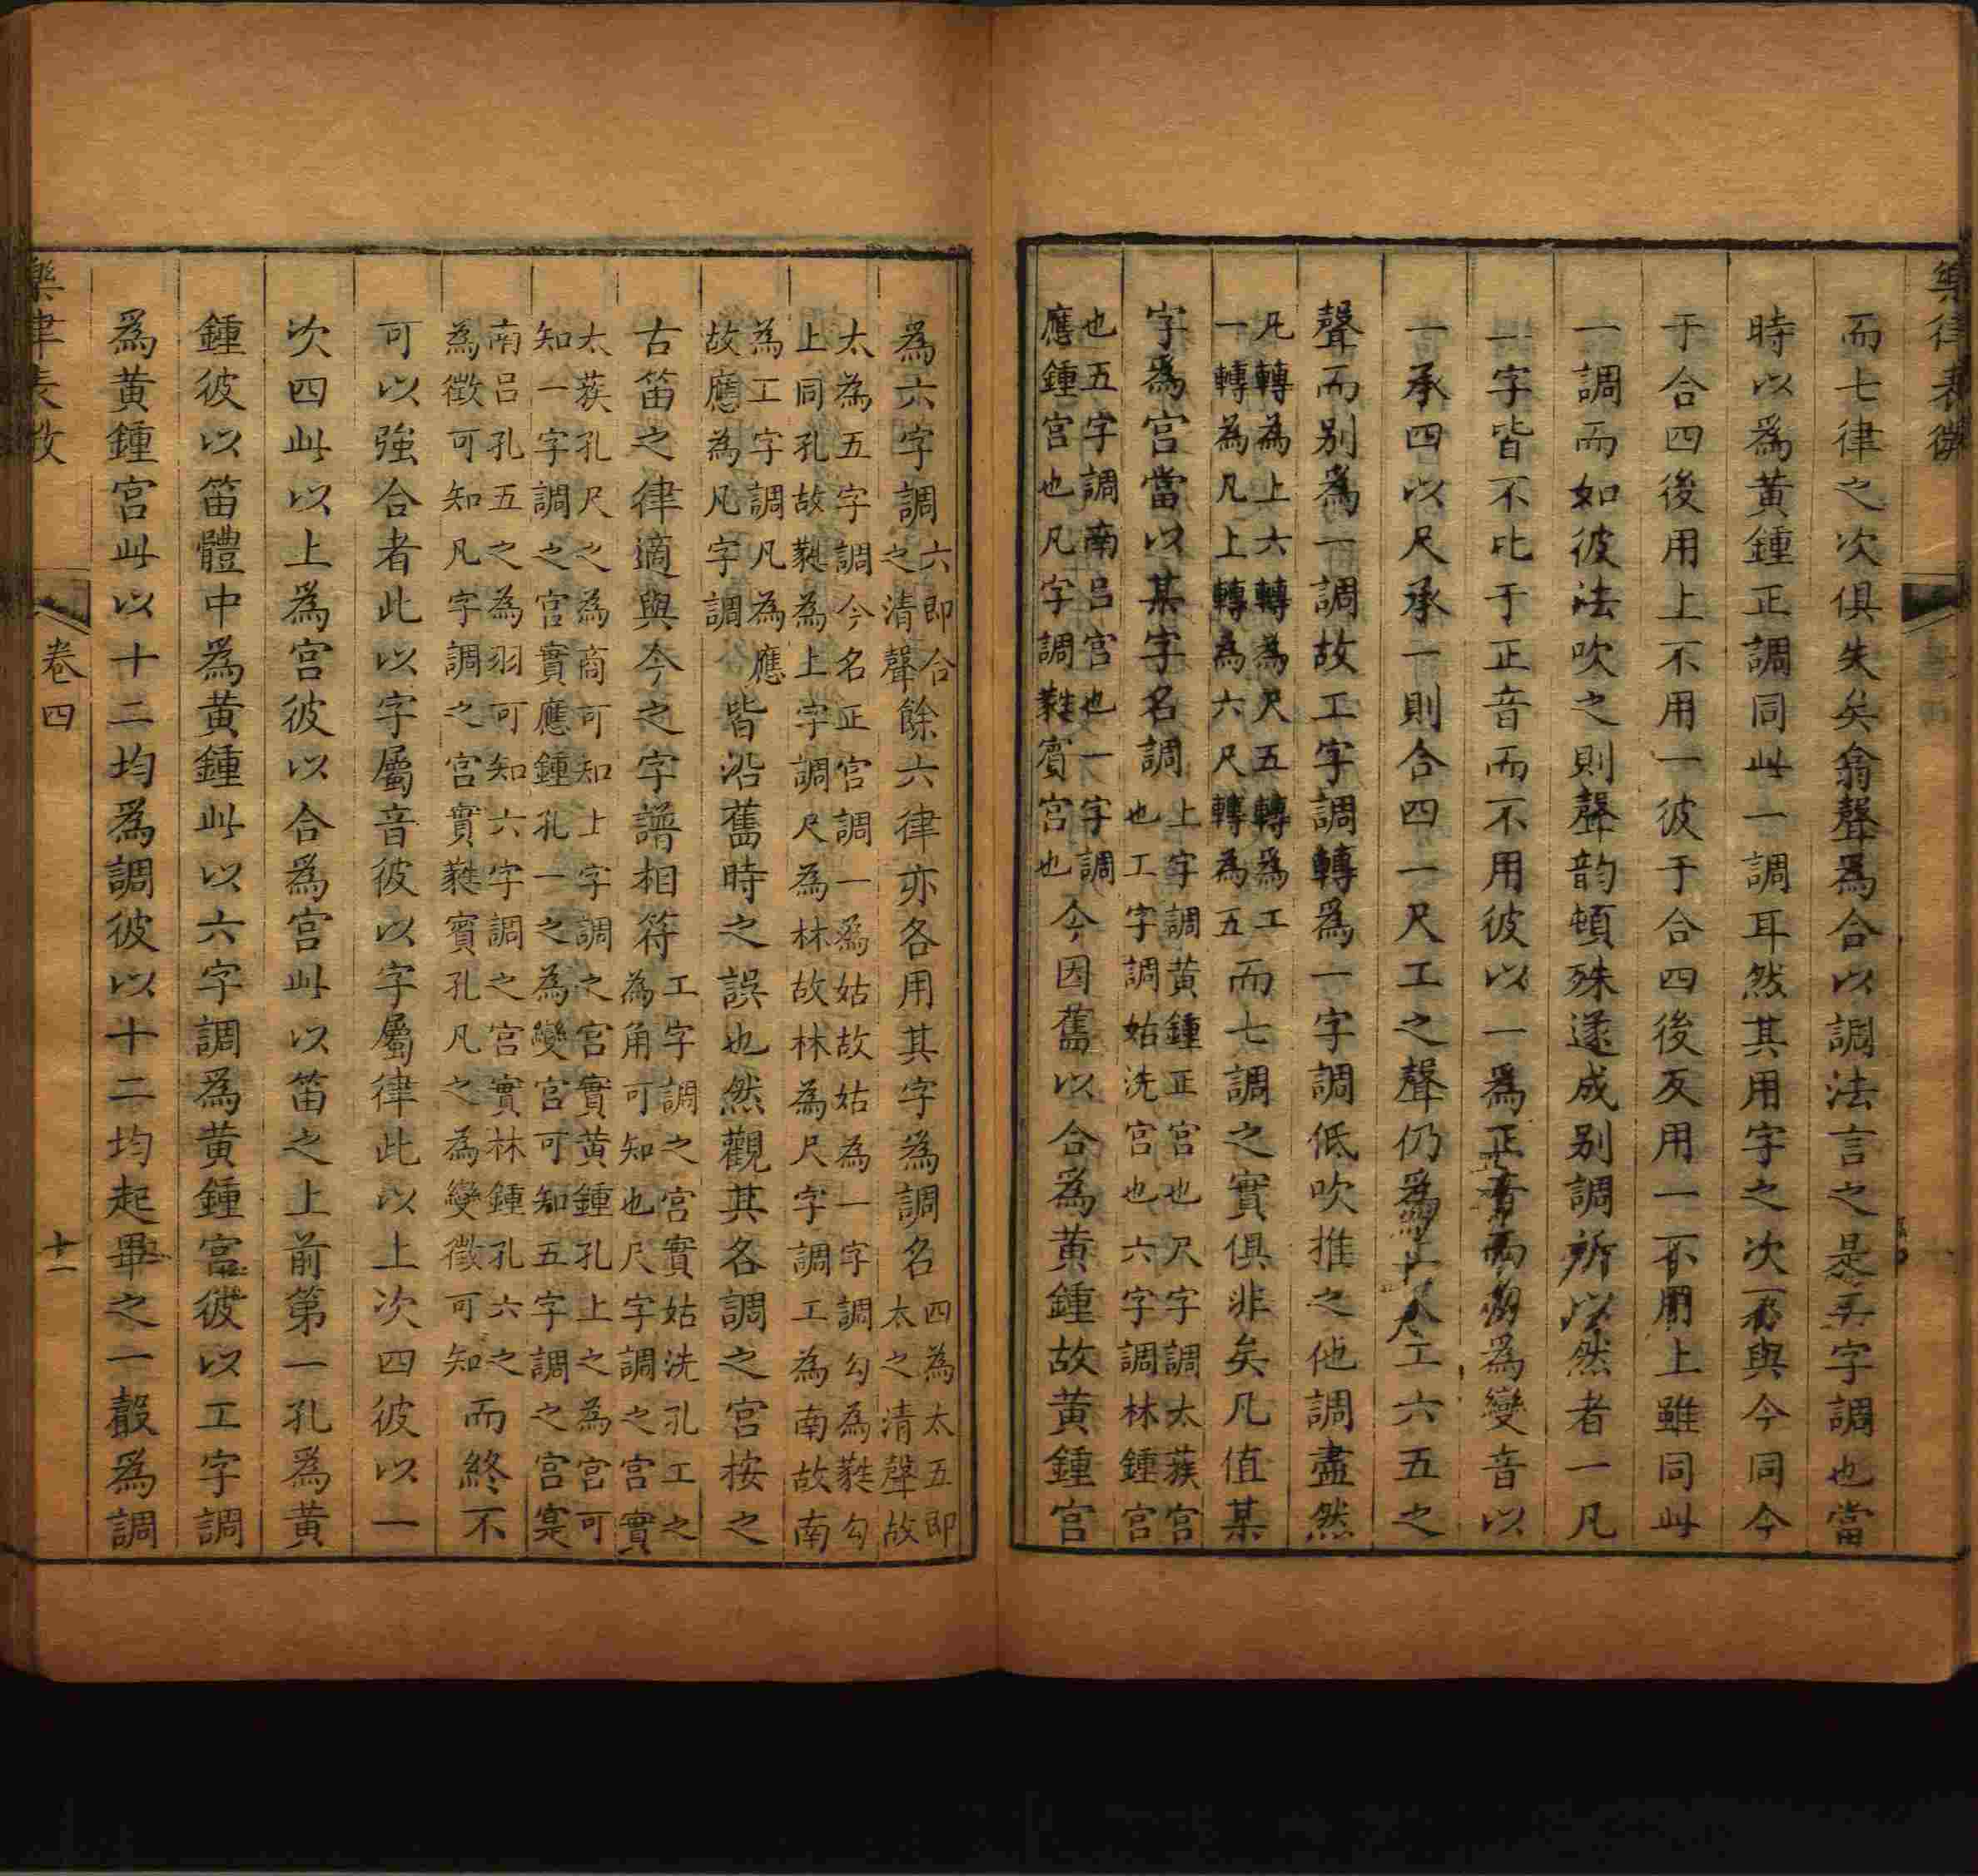 樂律表微
而七律之次俱失矣翕聲爲合以調法言之是五字調也當
時以爲黄鍾正調同此一調耳然其用字之次與今同今
于合四後用上不用一彼于合四後反用一不用上雖同此
一調而如彼法吹之則聲韵頓殊遂成别調所以然者一凡
一字皆不比于正音而不用彼以一爲正音而爲變音以
一承四以尺承一則合四一尺工之聲仍爲上尺工六五之
聲而别爲一調故工字調轉爲一字調低吹推之他調盡然
凡轉為上六轉為尺五轉為工
一轉為凡上轉為六尺轉為五
而七調之實俱非矣凡值某
字爲宫當以某字名調
上字調黄鍾正宫也尺字調太蔟宫
也工字調姑洗宫也六字調林鍾宫
也五字調南吕宫也一字調
應鍾宫也凡字調蕤賓宫也
今因舊以合爲黄鍾故黄鍾宫
爲六字調
六即合
之清聲
餘六律亦各用其字爲調名
四為太五即
太之清聲故
太為五字調今名正宫調一為姑故姑為一字調勾為蕤勾
上同孔故蕤為上字調尺為林故林為尺字調工為南故南
為工字調凡為應
故應為凡字調
皆沿舊時之誤也然觀其各調之宫按之
古笛之律適與今之字譜相符
工字調之宫實姑洗孔工之
為角可知也尺字調之宫實
太蔟孔尺之為商可知上字調之宫實黄鍾孔上之為宫可
知一字調之宫實應鍾孔一之為變宫可知五字調之宫寔
南吕孔五之為羽可知六字調之宫實林鍾孔六之
為徴可知凡字調之宫實蕤賓孔凡之為變徴可知
而終不
可以強合者此以字屬音彼以字屬律此以上次四彼以一
次四此以上爲宫彼以合爲宫此以笛之上前第一孔爲黄
鍾彼以笛體中爲黄鍾此以六字調爲黄鍾宫彼以工字調
爲黄鍾宫此以十二均爲調彼以十二均起畢之一聲爲調
卷四
十一